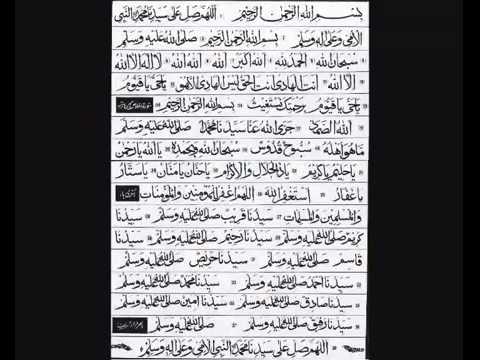 بسم الله الرحمن الرحيم اللهم صل على سيدنا محمد النبي
الامي وعلى اله وسلم بسم الله الرحمن الرحيم صلى الله عليه وسلم
سبحان الله الحمد لله الله اكبر الله الله لا اله الا الله
الا الله انت الهادي انت الحق ليس الهادي الا هو يا حي يا قيوم
يا حي يا قيوم برحمتك يستغيث بسم الله الرحمن الرحيم
الله الصمد جزى الله عنا سيدنا محمدا صلى الله عليه وسلم
ما هو اهله سبوح قدوس سبحان الله وبحمده يا الله يا رحمن
يا حليم يا كريم يا ذا الجلال والاكرام يا حنان يا منان يا ستار
يا غفار استغفر الله اللهم اغفر للمؤمنين والمؤمنات
والمسلمين والمسلمات سيدنا قريب صلى الله عليه وسلم سيدنا
كريم صلى الله عليه وسلم سيدنا رحيم صلى الله عليه وسلم سيدنا
قاسم صلى الله عليه وسلم سيدنا حريص صلى الله عليه وسلم
سيدنا احمد صلى الله عليه وسلم سيدنا محمد صلى الله عليه وسلم
سيدنا صادق صلى الله عليه وسلم سيدنا امين صلى الله عليه وسلم
سيدنا رفيق صلى الله عليه وسلم صلى الله عليه وسلم
اللهم صل على سيدنا محمد النبي الامي وعلى اله وسلم